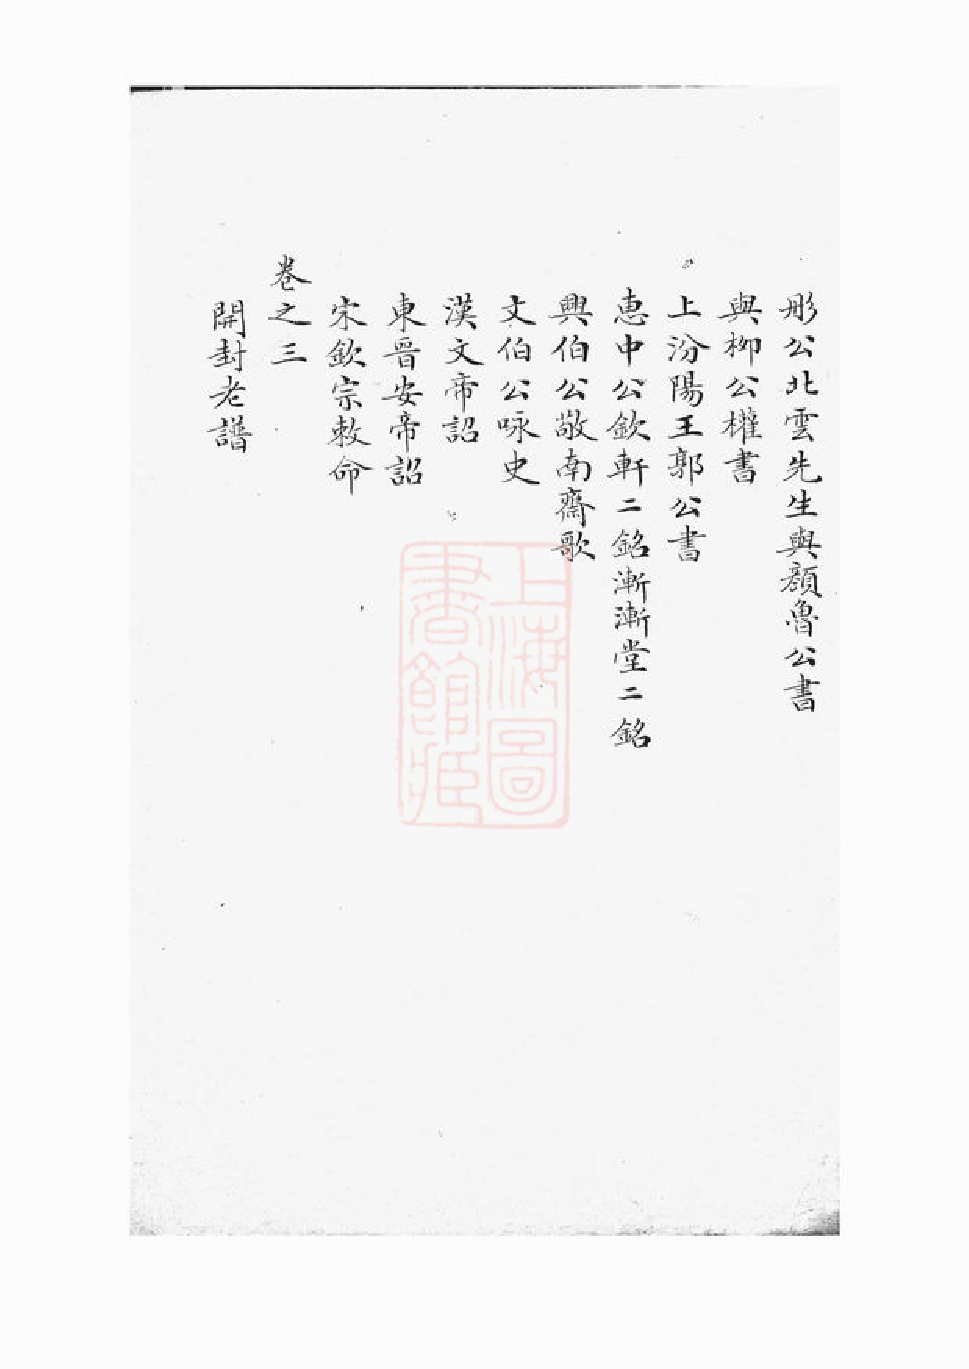 彤公北雲先生與顏魯公書
與柳公權書
上汾陽王郭公書
惠中公欽軒二銘漸漸堂二銘
興伯公敬南齋歌
文伯公咏史
漢文帝詔
東晉安帝詔
宋欽宗敕命
卷之三
開封老譜
上海圖書館藏